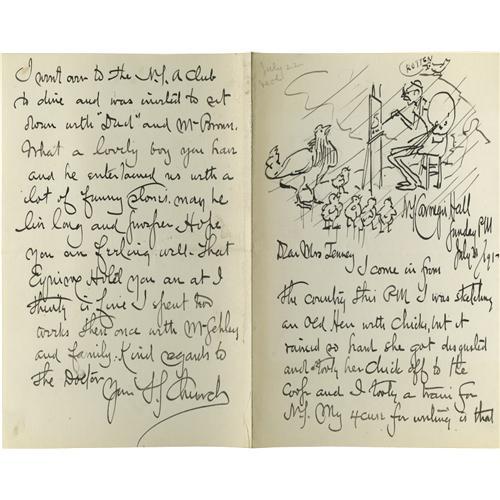 July 22
ROTTEN
Carnegie Hall
Sunday PM
July 20/191
Dear Mrs Tenney
I come in from
the country this PM I was sketching
an old Hen with Chicks, but it
rained so hard she got disgusted
and took her chick off to the
Coop and I took a train for
N.Y. My 4 cuse for writing is that
I went over to the N.Y. A Club
to dine and was invited to sit
down with "Dud" and Mr Brown.
What a lovely boy you have
and he entertained us with a
lot of funny stories. may he
live long and prosper. Hope
you are feeling well. That
House you are at I
think is fine I spent two
weeks there once with Mr
and family. Kind regards to
the Doctor
Yours F S Church